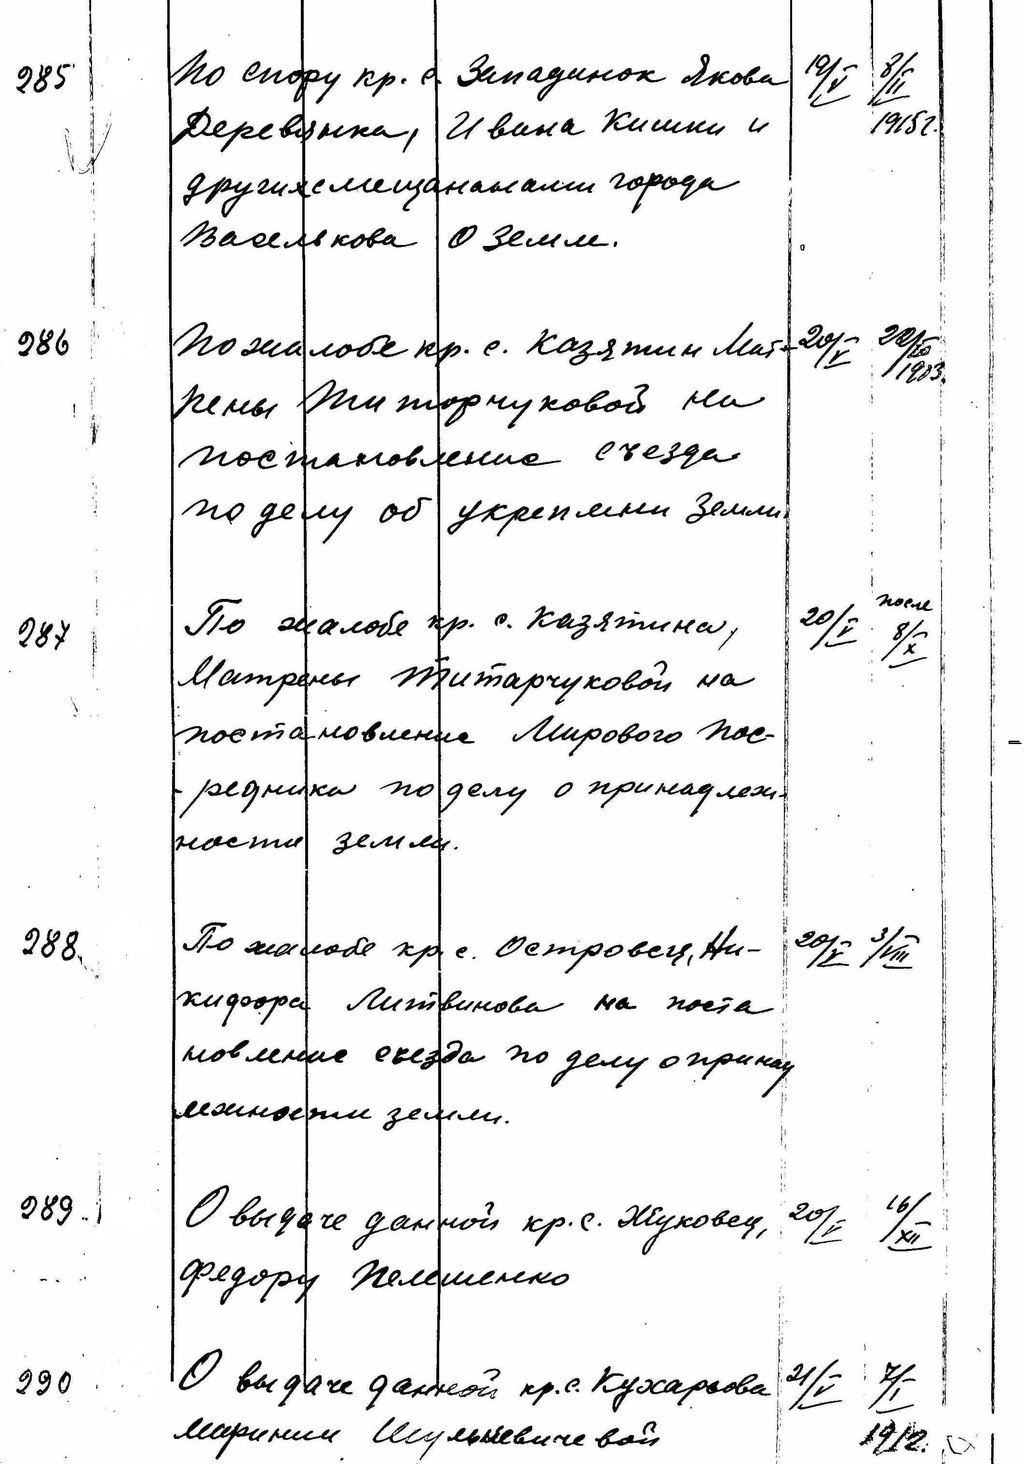 285 По спору кр. с. Западинок Якова 19/V 8/II
Деревянка, Ивана Кишки и 1915г.
других с мещананами города
Василькова о земле.
286 По жалобе кр. с. Казятин Мат- 20/V
рены Титорчуковой на 1903.
постановление съезда
по делу об укреплени земли.
287 По жалобе кр. с. Казятина, 20/V после
Матрены Титарчуковой на 8/X
постановление Мирового Пос-
-редника по делу о принадлежи-
ности земли.
288 По жалобе кр. с. Островец, Ни- 20/V 3/VIII
кифора Литвинова на поста
новление съезда по делу о принад
лежности земли.
289 О выдаче данной кр. с. Жуковец, 20/V 16/XII
Федору Пелешенко
290 О выдаче данной кр. с. Кухарьова 21/V 7/I
Маринии Шулькевичевой 1912.